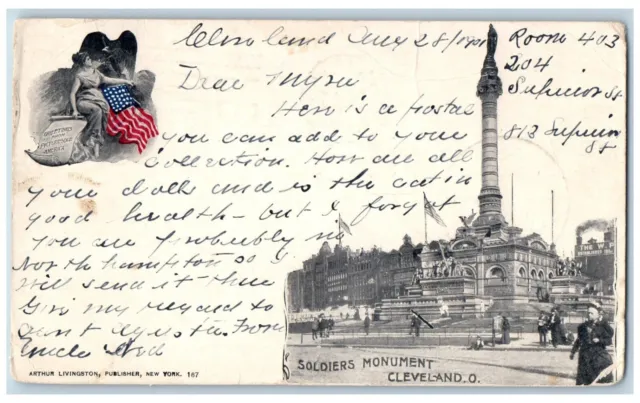 Cleveland Aug 28/1901
Room 403
204
Superior St
813 Superior
St
Dear Myra
Here is a postal
you can add to your
collection. How are all
your dolls and is the cat in
good health - but I forgot
you are probably in
Northampton so I
will send it there
Give my regard to
aunt From
Uncle
SOLDIERS MONUMENT
CLEVELAND, O.
ARTHUR LIVINGSTON, PUBLISHER, NEW YORK. 167